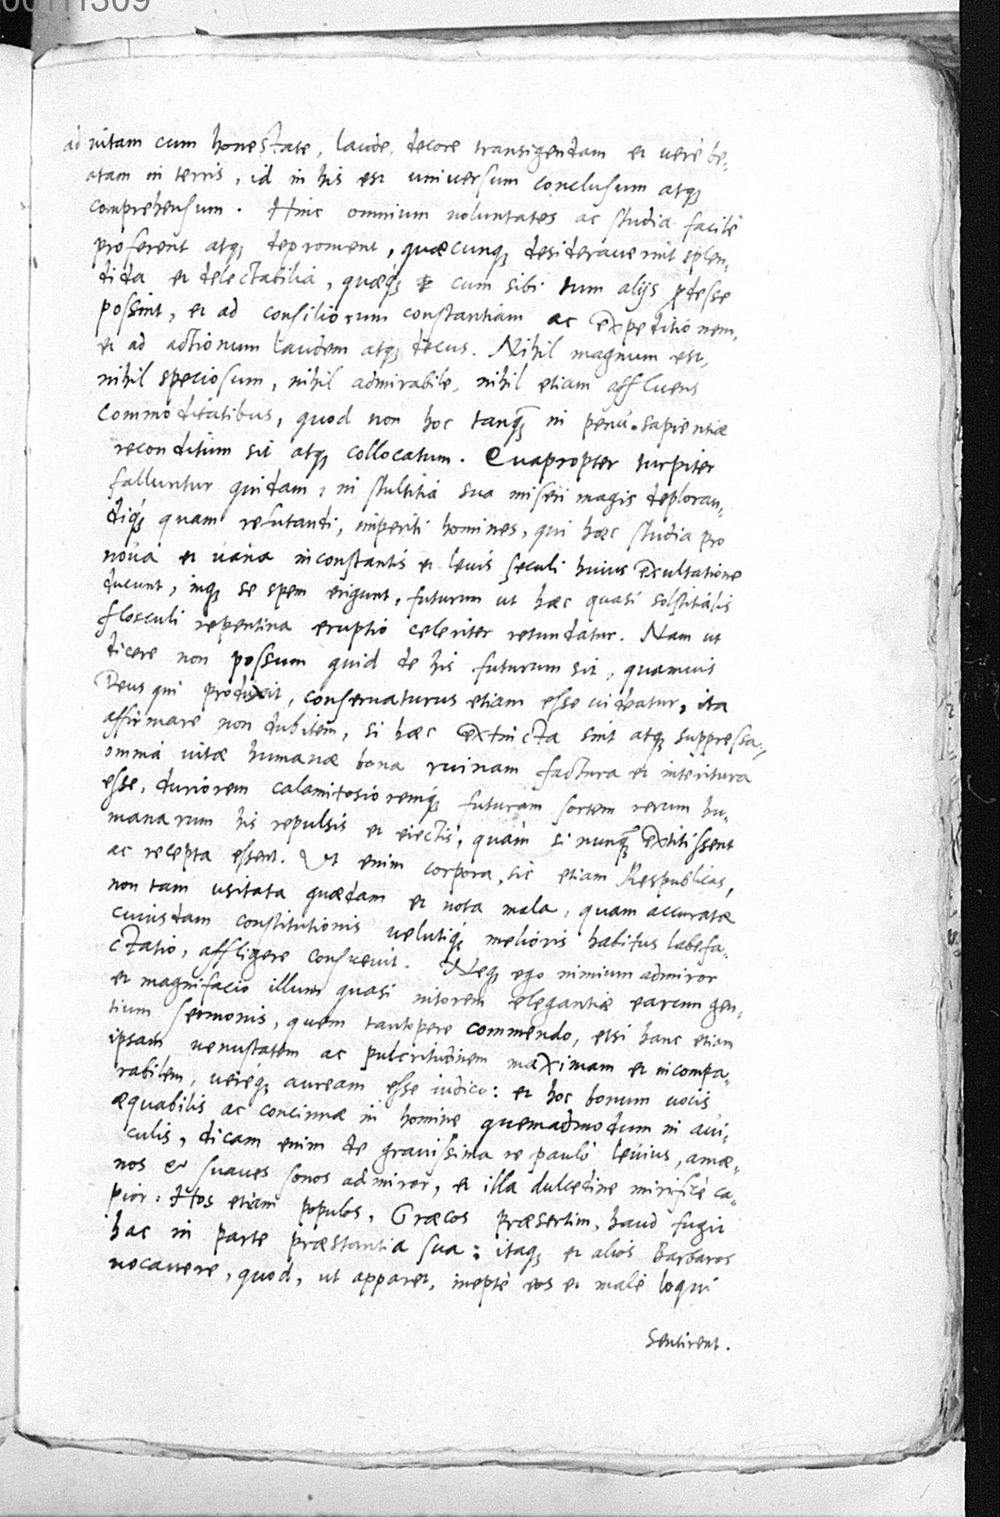 00111309
ad uitam cum honestate, laude, decore transigendam et uerè be,
atam in terris, id in his est uniuersum conclusum atq;
comprehensum. Hinc omnium uoluntates ac studia facilè
proferent atq; depromens, quæcunq; desiderauerint splen,
dida et delectabilia, quæq; cum sibi tum alijs prodesse
possint, et ad consiliorum constantiam ac expeditionem,
et ad actionum laudem atq; decus. Nihil magnum est,
nihil speciosum, nihil admirabile, nihil etiam affluens
commoditatibus, quod non hoc tanq; in penu sapientiæ
reconditum sit atq; collocatum. Quapropter turpiter
falluntur quidam, in stultitia sua miseri magis deploran,
diq; quam refutandi, imperiti homines, qui hæc studia pro
noua et uana inconstantis et leuis seculi huius exultatione
ducunt, inq; se spem erigunt, futurum ut hæc quasi solstitialis
flosculi repentina eruptio celeriter retundatur. Nam ut
dicere non possum quid de his futurum sit, quamuis
Deus qui produxit, conseruaturus etiam esse uideatur, ita
affirmare non dubitem, si hæc extincta sint atq; suppressa,
omnia uitæ humanæ bona ruinam factura et interitura
esse, duriorem calamitosioremq; futuram sortem rerum hu,
manarum his repulsis et eiectis, quàm si nunq; extitissent
ac recepta essent. Vt enim corpora, sic etiam Respublicas,
non tam usitata quædam et nota mala, quam accuratæ
cuiusdam constitutionis uelutiq; melioris habitus labefa,
ctatio, affligere consueuit. Neq; ego nimium admiror
et magnifacio illum quasi nitorem elegantiæ earum gen,
tium sermonis, quem tantopere commendo, etsi hanc etiam
ipsam uenustatem ac pulcritudinem maximam et incompa,
rabilem, uereq; auream esse iudico: et hoc bonum uocis
æquabilis ac concinnæ in homine quemadmodum in aui,
culis, dicam enim de grauissima re paulò leuius, amœ,
nos et suaues sonos admiror, et illa dulcedine mirificè ca,
pior: Hos etiam populos, Græcos præsertim, haud fugit
hac in parte præstantia sua: itaq; et alios Barbaros
uocauere, quod, ut apparet, ineptè eos et malè loqui
sentirent.